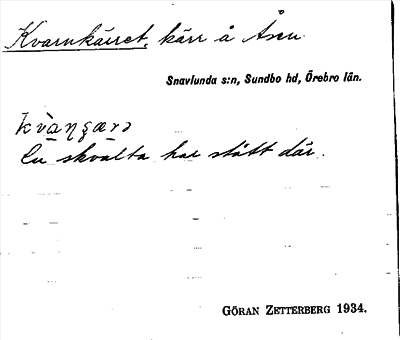 Kvarnkärret, kärr å Åsen.
Snavlunda s:n, Sundbo hd, Örebro län.
En skvalta har stått där.
GÖRAN ZETTERBERG 1934.